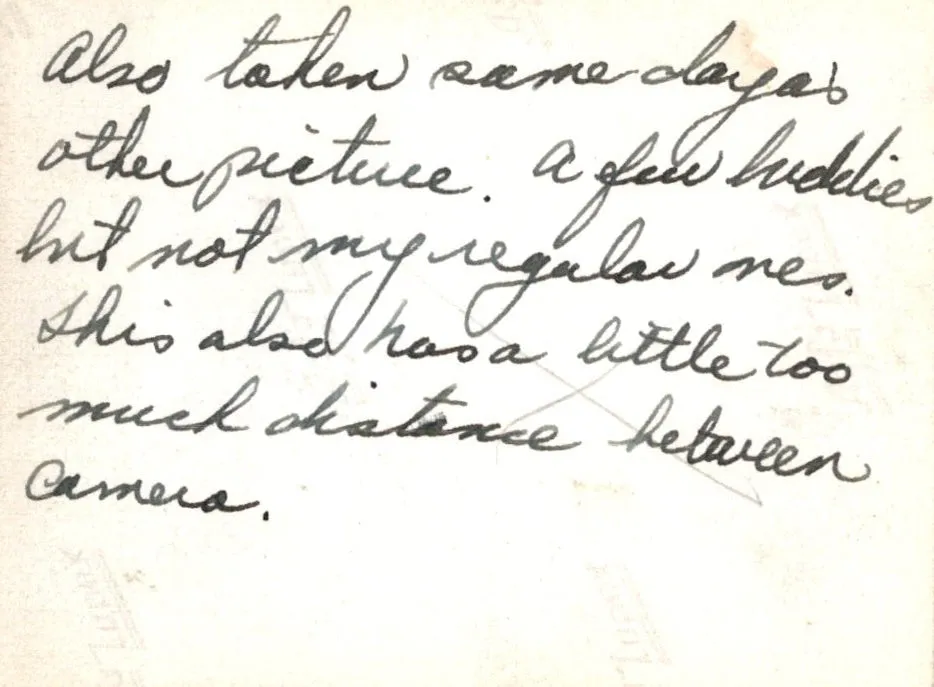 Also taken same day as
other picture. A few buddies
but not my regular ones.
This also has a little too
much distance between
camera.